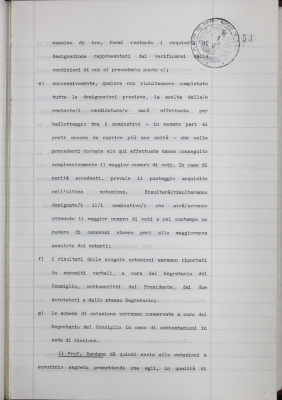 massimo di tre, fermi restando i requisiti
designazione rappresentati dal verificarsi delle
condizioni di cui al precedente punto c);
e) successivamente, qualora non risultassero completate
tutte le designazioni previste, la scelta della/e
restante/i candidatura/e sarà effettuata per
ballottaggio tra i nominativi - in numero pari ai
posti ancora da coprire più una unità - che nelle
precedenti tornate sin qui effettuate hanno conseguito
complessivamente il maggior numero di voti. In caso di
parità accedenti, prevale il punteggio acquisito
nell'ultima votazione. Risulterà/risulteranno
designato/i il/i nominativo/i che avrà/avranno
ottenuto il maggior numero di voti e nel contempo un
numero di consensi almeno pari alla maggioranza
assoluta dei votanti;
f) i risultati delle singole votazioni saranno riportati
in appositi verbali, a cura del Segretario del
Consiglio, sottoscritti dal Presidente, dai due
scrutatori e dallo stesso Segretario;
g) le schede di votazione verranno conservate a cura del
Segretario del Consiglio in caso di contestazioni in
sede di elezione.
Il Prof. dà quindi avvio alle votazioni a
scrutinio segreto premettendo che egli, in qualità di